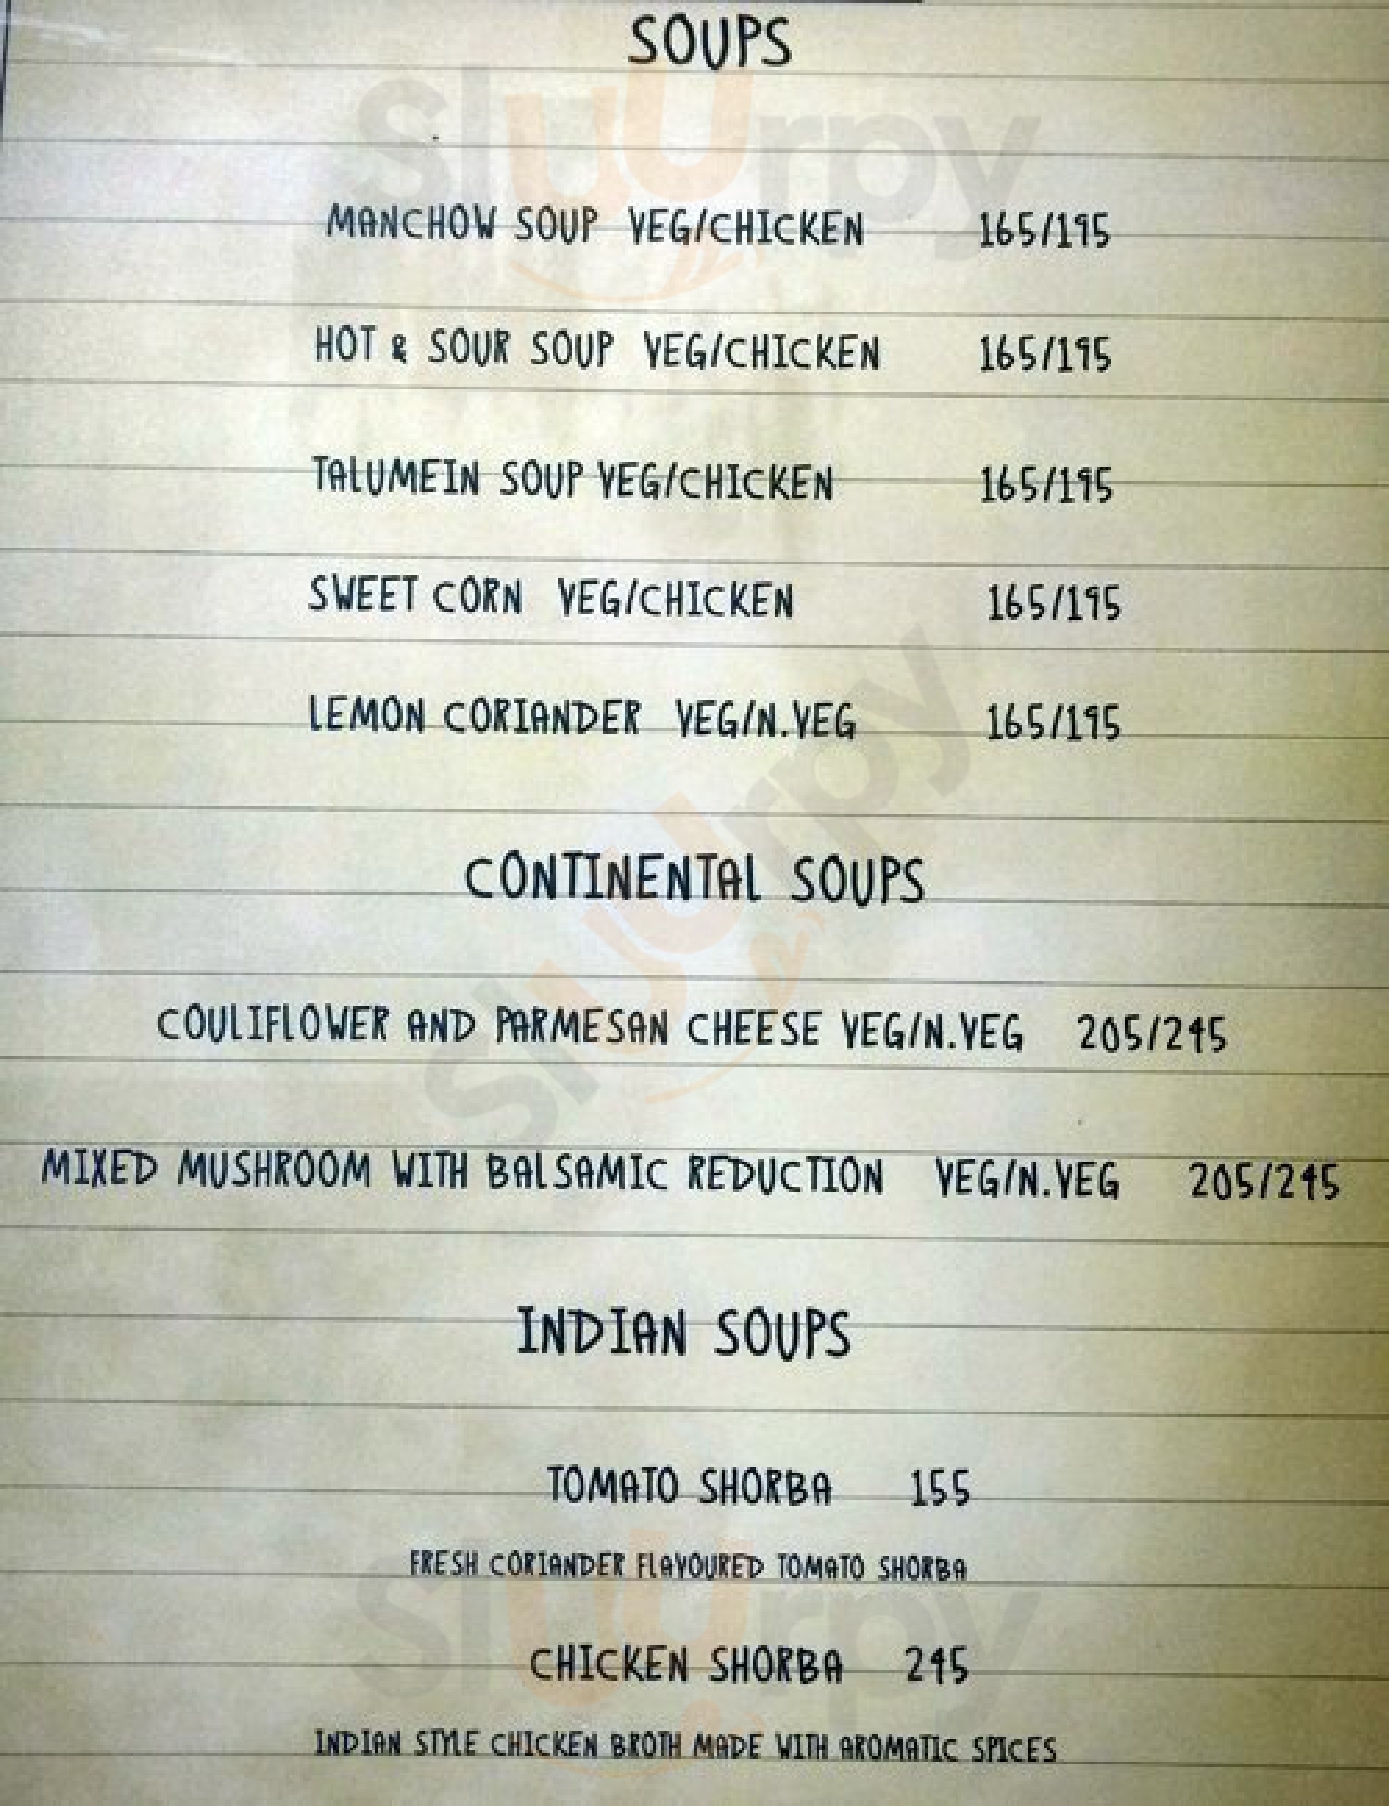 SOUPS
sluurpy
MANCHOW SOUP VEG/CHICKEN 165/195
HOT & SOUR SOUP VEG/CHICKEN 165/195
TALUMEIN SOUP VEG/CHICKEN 165/195
SWEET CORN VEG/CHICKEN 165/195
LEMON CORIANDER VEG/N.VEG 165/195
sluurpy
CONTINENTAL SOUPS
COULIFLOWER AND PARMESAN CHEESE VEG/N.VEG 205/245
MIXED MUSHROOM WITH BALSAMIC REDUCTION VEG/N.VEG 205/245
INDIAN SOUPS
TOMATO SHORBA 155
FRESH CORIANDER FLAVOURED TOMATO SHORBA
sluurpy
CHICKEN SHORBA 245
INDIAN STYLE CHICKEN BROTH MADE WITH AROMATIC SPICES